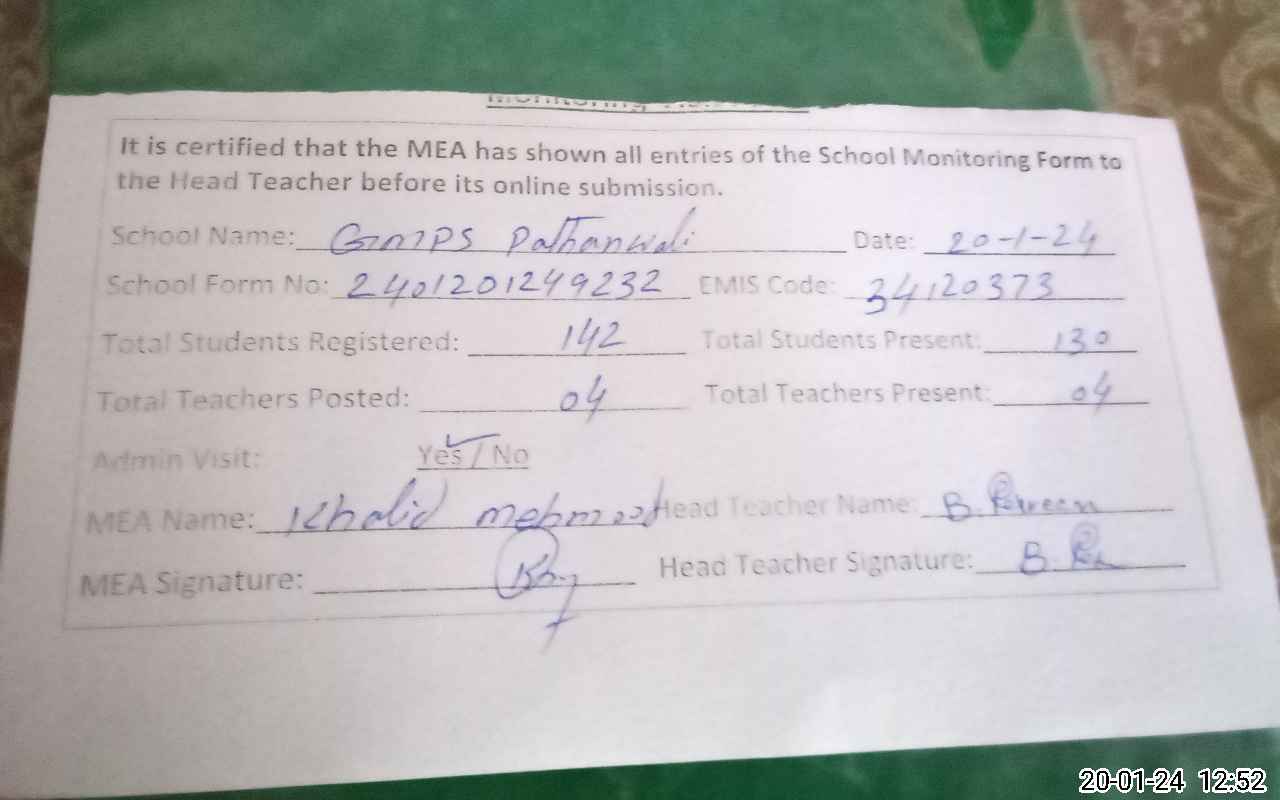 It is certified that the MEA has shown all entries of the School Monitoring Form to
the Head Teacher before its online submission.
School Name: GMPS Pathanwali Date: 20-1-24
School Form No: 2401201249232 EMIS Code: 34120373
Total Students Registered: 142 Total Students Present: 130
Total Teachers Posted: 04 Total Teachers Present: 04
Admin Visit: Yes / No
MEA Name: Khalid mehmood Head Teacher Name: B.
MEA Signature: Head Teacher Signature: B.
20-01-24 12:52